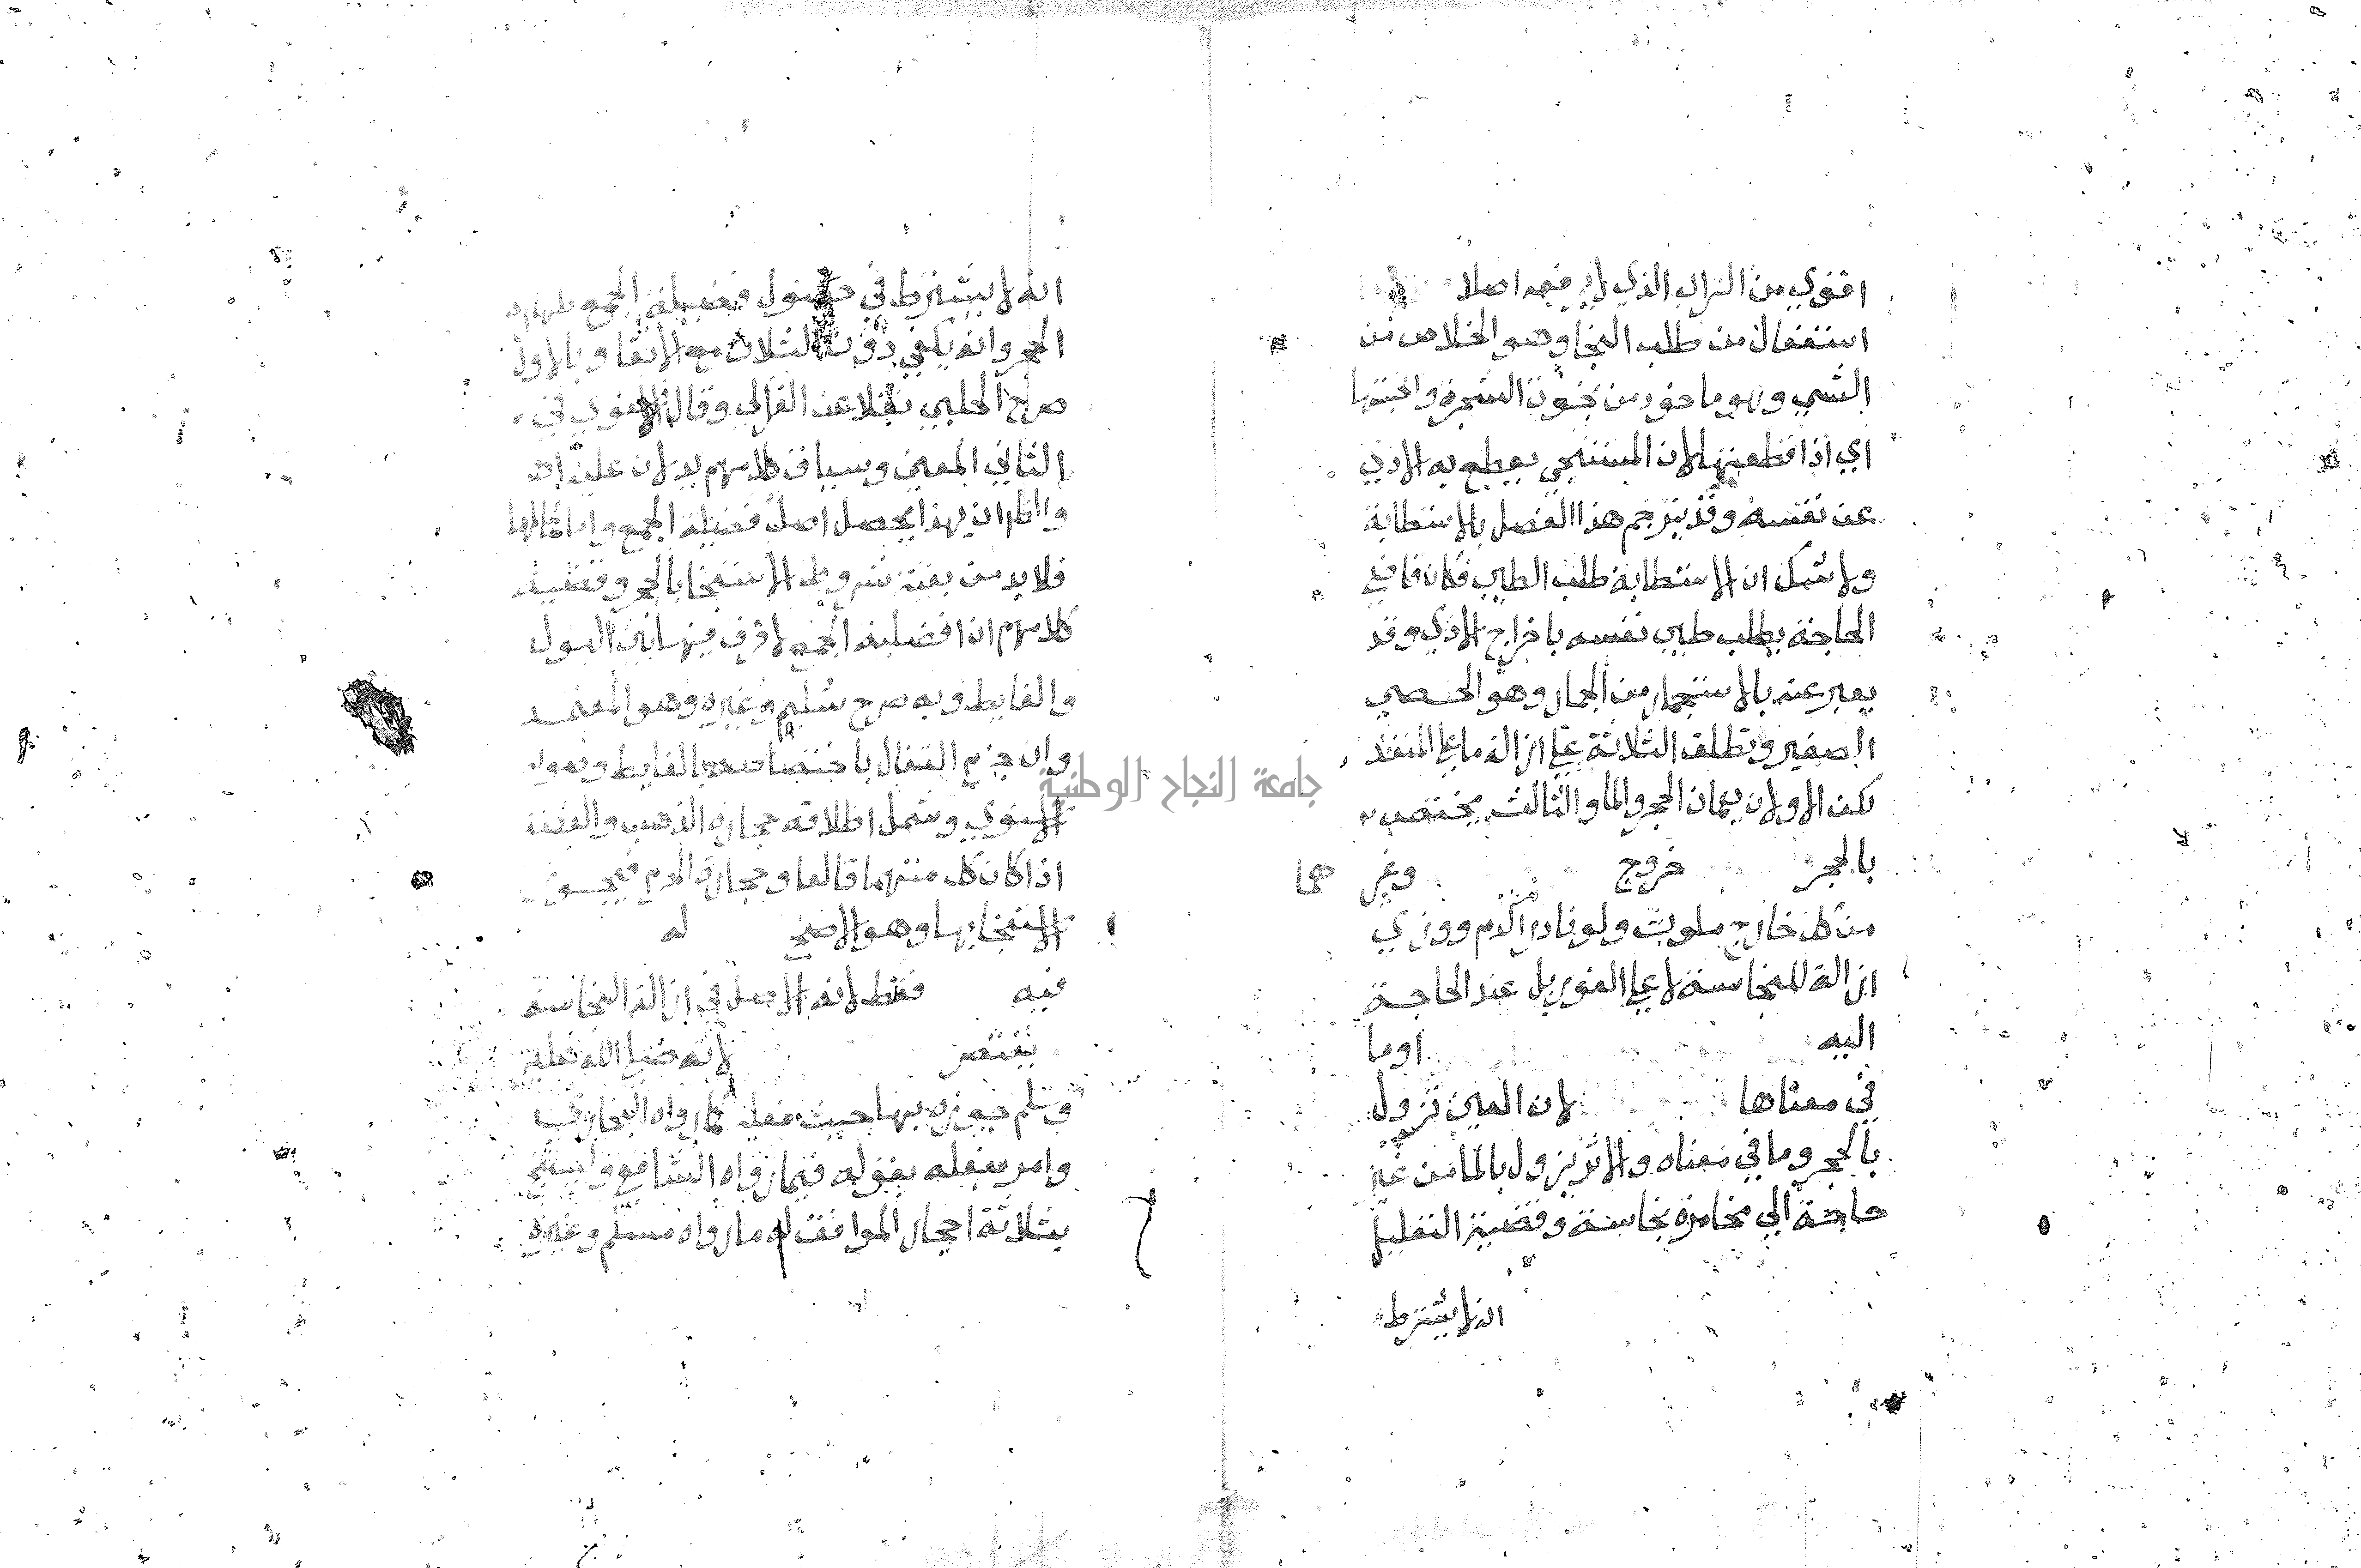 اقوي من التراب الذي لا فيه اصلا
استفعال من طلب النجا وهو الخلاص من
الشي وهو ماخوذ من نجوت الشجرة وانجيتها
اي اذا قطعتها لان المستنجي يقطع به الاذي
عن نفسه وقد يترجم هذا الفصل بالاستطابة
ولا شك ان الاستطابة طلب الطيب فكان قاضي
الحاجة يطلب طيب نفسه باخراج الاذي وقد
يعبر عنه بالاستجمار من الجمار وهو الحصي
الصغير وتطلق الثلاثة علي ازالة ما علي المنفذ
لكن الاولان يعمان الحجر والما والثالث يختص
بالحجر خروج وغير هما
من كل خارج ملوث ولو نادرا كدم وودي
ازالة للنجاسة لا علي الفور بل عند الحاجة
اليه اوما
في معناها لان العين تزول
بالحجر وما في معناه والاثر يزول بالما من غير
حاجة الي مخامرة نجاسة وقضية التعليل
انه لا يشترط
انه لا يشترط في حصول فضيلة الجمع طهارة
الحجر وانه يكفي دون الثلاث مع الانقا وبالاول
صرح الجيلي نقلا عن الغزالي وقال الاسنوي في
الثاني المعني وسياق كلامهم يدلان عليه انتهى
والظاهر ان بهذا يحصل اصل فضيلة الجمع واما كمالها
فلا بد من بقية شروط الاستنجا بالحجر وقضية
كلامهم ان افضلية الجمع لا فرق فيها بين البول
والغايط وبه صرح سليم وغيره وهو المعتمد
وان جزم القفال باختصاصه بالغايط وصوبه
الاسنوي وشمل اطلاقه حجارة الذهب والفضة
اذا كان كل منهما قالعا وحجارة الحرم فيجوز
الاستنجا بها وهو الاصح له
فيه فقط لانه الاصل في ازالة النجاسة
يقتصر لانه صلي الله عليه
وسلم جوزه بها حيث فعله كما رواه البخاري
وامر بفعله بقوله فيما رواه الشافعي وليستنج
بثلاثة احجار الموافق له ما رواه مسلم وغيره
جامعة النجاح الوطنية